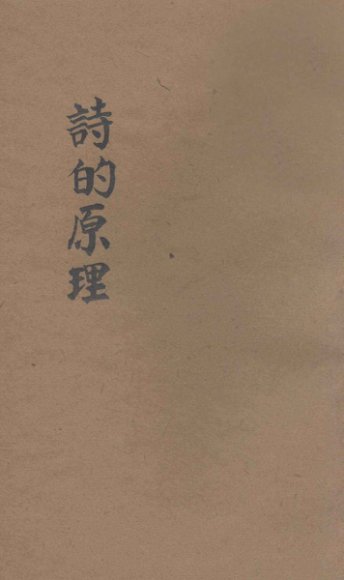 詩的原理